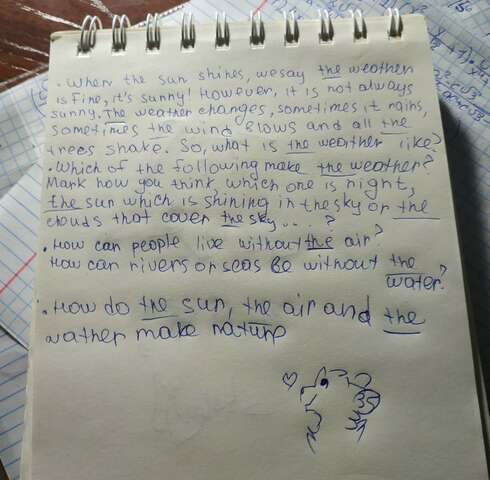 . When the sun shines, we say the weather
is fine, it's sunny! However, it is not always
sunny. The weather changes, sometimes it rains,
sometimes the wind blows and all the
trees shake. So, what is the weather like?
. Which of the following make the weather?
Mark how you think, which one is right,
the sun which is shining in the sky or the
clouds that cover the sky . . . ?
. How can people live without the air?
How can rivers or seas be without the
water?
. How do the sun, the air and the
wather make nature